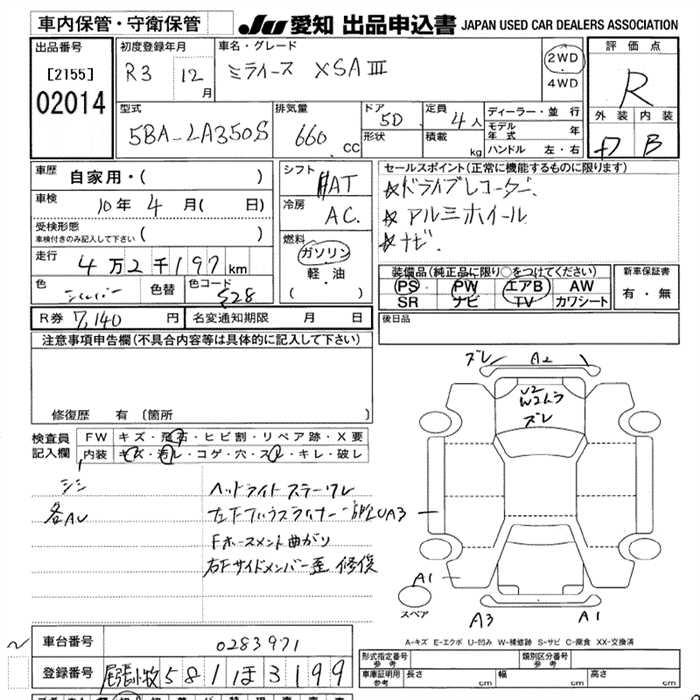 車内保管・守衛保管
JU 愛知 出品申込書 JAPAN USED CAR DEALERS ASSOCIATION
出品番号
[2155]
02014
初度登録年月
R3 12月
車名・グレード
ミライース XSAⅢ
2WD
4WD
評価点
R
外装 内装
B
型式
5BA-LA350S
排気量
660.cc
ドア
5D
形状
定員
4人
積載
kg
ディーラー・並行
モデル年式 年
ハンドル 左・右
車歴
自家用・( )
車検
10年4月( 日)
受検形態
車検付きのみ記入して下さい ( )
走行
4万2千197km
色
シルバー
色替
色コード
S28
シフト
AT
冷房
AC.
燃料
ガソリン
軽・油
( )
セールスポイント(正常に機能するものに限ります)
☆ドライブレコーダー.
☆アルミホイール
☆ナビ.
装備品(純正品に限り○をつけてください)
PS PW エアB AW
SR ナビ TV カワシート
新車保証書
有・無
R券 7,140円
名変通知期限 月 日
後日品
注意事項申告欄(不具合内容等は具体的に記入して下さい)
修復歴 有(箇所 )
検査員記入欄
FW キズ・飛石・ヒビ割・リペア跡・X要
内装 キズ・汚レ・コゲ・穴・スレ・キレ・破レ
シミ
各AU
ヘッドライトステーワレ
Fホースメント曲がり
右Fサイドメンバー歪 修復
ズレ A2
U2
W2ムラ
ズレ
UA3
A1
スペア
A3 A1
A-キズ E-エクボ U-凹み W-補修跡 S-サビ C-腐食 XX-交換済
車台番号
0283971
登録番号
尾張小牧 581 ほ 3199
形式指定番号 参考
類別区分番号 参考
車庫証明用 参考
長さ cm 幅 cm 高さ cm